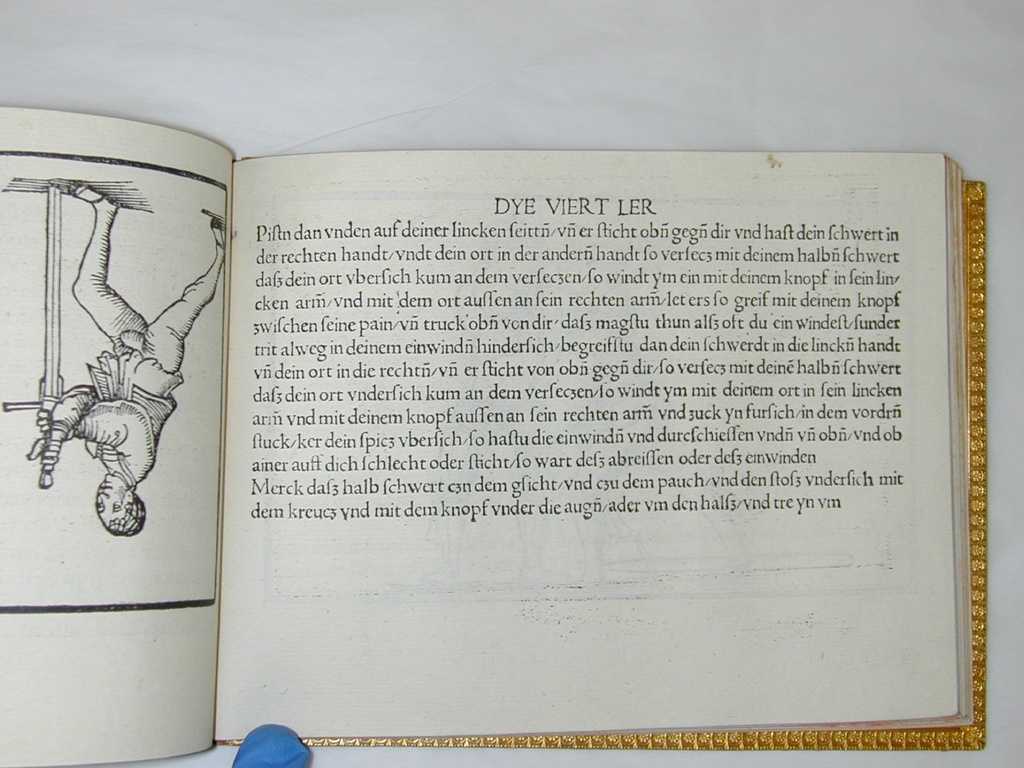 DYE VIERT LER
Piſtn dan vnden auf deiner lincken ſeittñ/vñ er ſticht obñ gegñ dir vnd haſt dein ſchwert in
der rechten handt/vndt dein ort in der anderñ handt ſo verſecz mit deinem halbñ ſchwert
daſz dein ort vberſich kum an dem verſeczen/ſo windt ym ein mit deinem knopf in ſein lin/
cken arm̃/vnd mit dem ort auſſen an ſein rechten arm̃/let ers ſo greif mit deinem knopf
zwiſchen ſeine pain/vñ truck obñ von dir/daſz magſtu thun alſz oft du ein windeſt/ſunder
trit alweg in deinem einwindñ hinderſich/begreifſtu dan dein ſchwerdt in die linckñ handt
vñ dein ort in die rechtñ/vñ er ſticht von obñ gegñ dir/ſo verſecz mit deinẽ halbñ ſchwert
daſz dein ort vnderſich kum an dem verſeczen/ſo windt ym mit deinem ort in ſein lincken
arm̃ vnd mit deinem knopf auſſen an ſein rechten arm̃ vnd zuck yn furſich/in dem vordrñ
ſtuck/ker dein ſpicz vberſich/ſo haſtu die einwindñ vnd durcſchieſſen vndñ vñ obñ/vnd ob
ainer auff dich ſchlecht oder ſticht/ſo wart deſz abreiſſen oder deſz einwinden
Merck daſz halb ſchwert czn dem gſicht/vnd czu dem pauch/vnd den ſtoſz vnderſich mit
dem kreucz vnd mit dem knopf vnder die augñ/ader vm den halſz/vnd tre yn vm